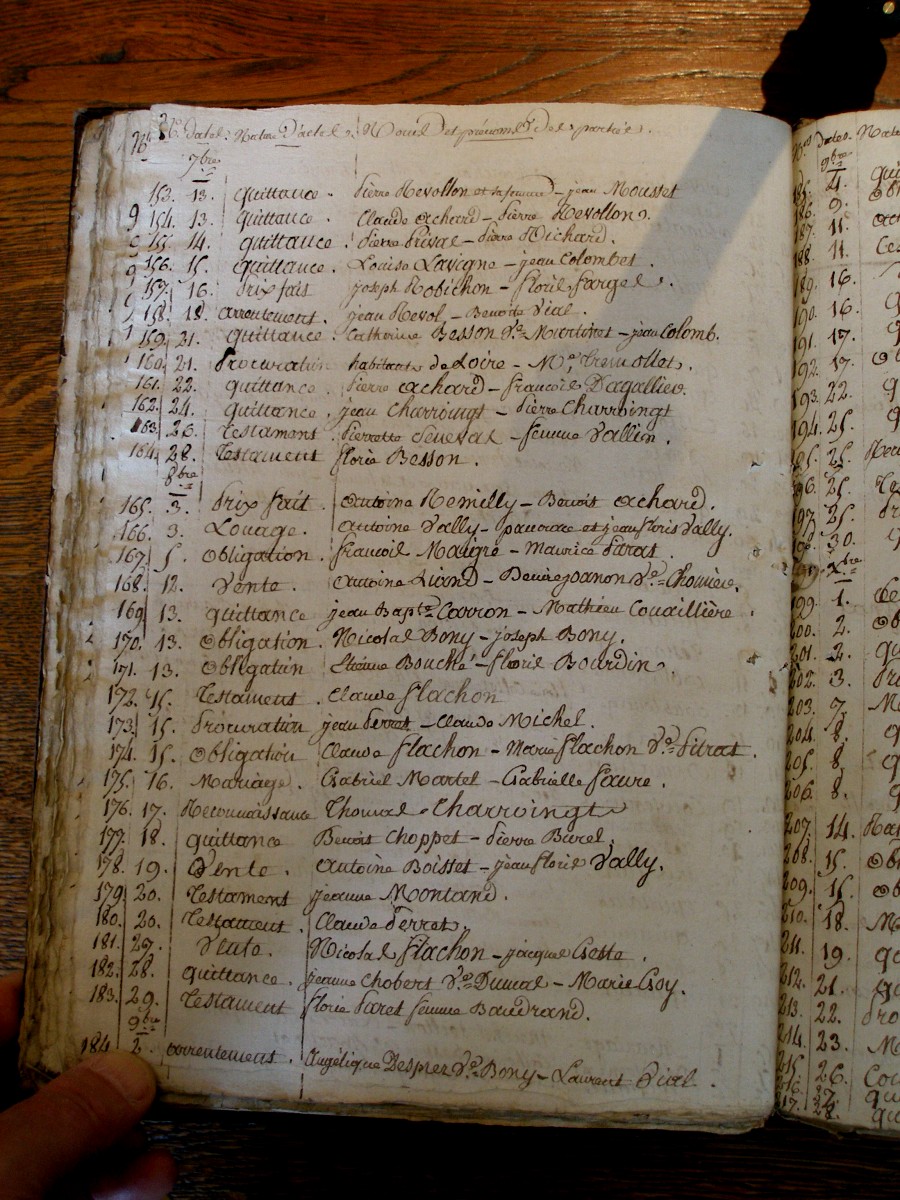 Nos. dates. Nature D'actes. Noms et prénoms des parties.
7bre
153. 13. quittance. pierre Revollon et sa femme - jean Mousset
154. 13. quittance. Claude achard - pierre Revollon.
155. 14. quittance. pierre privat - pierre Richard.
156. 15. quittance. Louise Lavigne - jean Colombet.
157. 16. prixfait joseph Robichon - floris fargel.
158. 18. arrentement. jean Revol - Benoite Vial.
159. 21. quittance. Catherine Besson Ve. Martinet - jean Colomb.
160. 21. procuration habitans de Loire - Me.
161. 22. quittance. pierre achard - francois Dagallier.
162. 24. quittance. jean Charroingt - pierre Charroingt
163. 26. testament. pierrette - femme Vallin.
164. 28. testament floris Besson.
8bre
165. 3. prix fait. antoine Remilly - Benoit achard.
166. 3. Louage. antoine Vally - pancrace et jean floris Vally.
167. 5. obligation. francois Maigre - Maurice pitrat.
168. 12. Vente. antoine - Ve. Chomier.
169. 13. quittance jean Bapte. Carron - Mathieu Couaillière.
170. 13. obligation. Nicolas Bony - joseph Bony.
171. 13. obligation Etienne Bouché - floris Bourdin.
172. 15. testament. Claude flachon
173. 15. procuration jean ferrat - Claude Michel.
174. 15. obligation Claude flachon - Marie flachon Ve. pitrat.
175. 16. Mariage. Gabriel Martel - Gabrielle faure.
176. 17. Reconnaissance Thomas Charroingt
177. 18. quittance Benoit Choppet - pierre Burel.
178. 19. Vente. antoine Boissat - jean floris Vally.
179. 20. testament jeanne Montand.
180. 20. testament. Claude ferret.
181. 27. Vente. Nicolas flachon - jacques Gette.
182. 28. quittance. jeanne Chobert Ve. Dumas - Marie Goy.
183. 29. testament floris paret femme Baudrand.
9bre
184. 2. arrentement. angélique Desprez Ve. Bony - Laurent Vial.
Nos. dates. Natu
9bre
185. 4. qui
186. 9. ob
187. 11.
188. 11.
189. 16.
190. 16. q
191. 17. q
192. 17. ob
193. 22. q
194. 25. q
195. 25.
196. 25.
197. 25.
198. 30. q
Xbre
199. 1.
200. 2. ob
201. 2. qu
202. 3.
203. 7.
204. 8. q
205. 8. q
206. 8. q
207. 14.
208. 15. ob
209. 15. ob
210. 18.
211. 19. qu
212. 21. qu
213. 22. pro
214. 23.
215. 26.
216. 27. qu
217. 28. qu